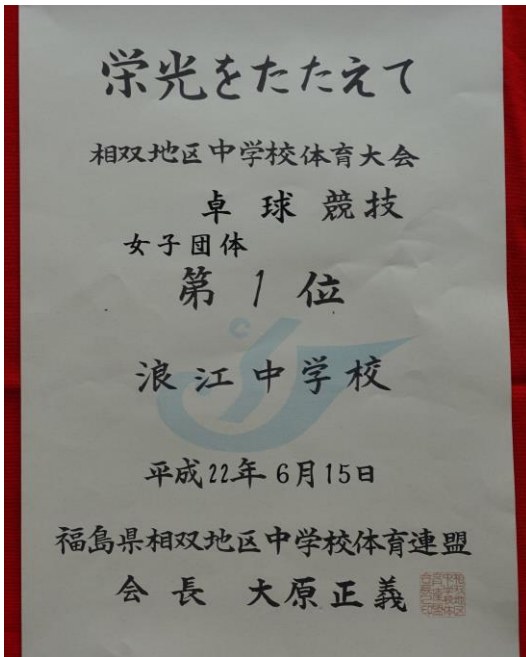 栄光をたたえて
相双地区中学校体育大会
卓球競技
女子団体
第1位
浪江中学校
平成22年6月15日
福島県相双地区中学校体育連盟
会長 大原正義